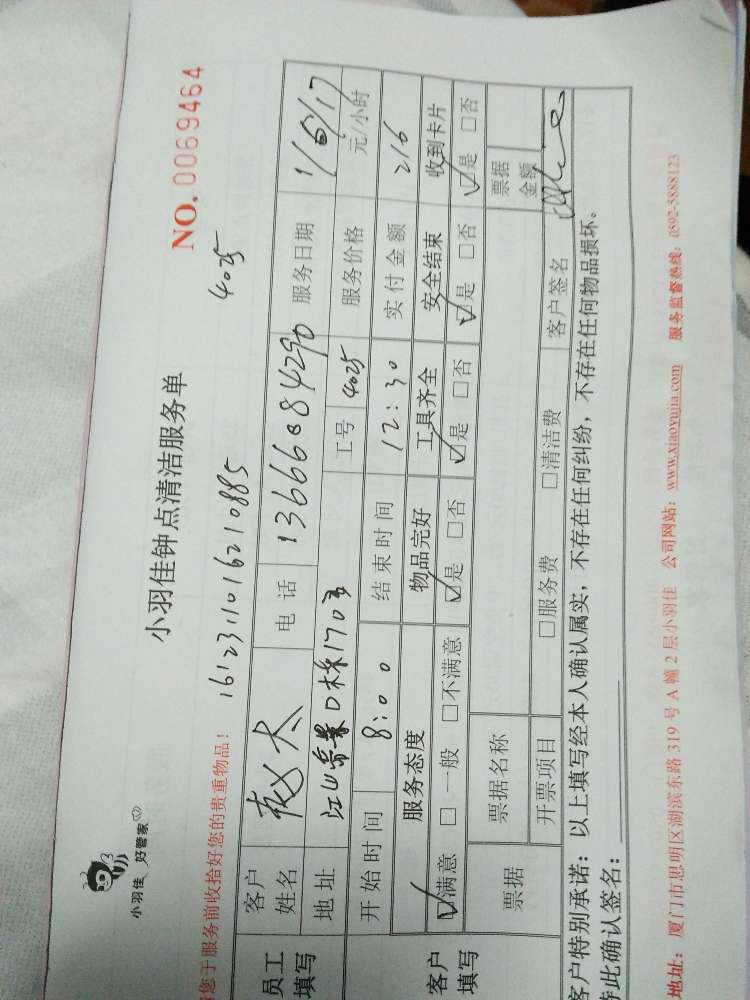 小羽佳 好管家
小羽佳钟点清洁服务单
NO. 0069464
您于服务前收拾好您的贵重物品！ 1612311016210885 4025
员工填写
客户姓名 赵大 电话 13666084290 服务日期 1/1
地址 江山帝景D栋1703 工号 4025 服务价格 元/小时
开始时间 8:00 结束时间 12:30 实付金额 216
客户填写
服务态度 物品完好 工具齐全 安全结束 收到卡片
☑满意 □一般 □不满意 ☑是 □否 ☑是 □否 ☑是 □否 ☑是 □否
票据 票据名称 票据金额
开票项目 □服务费 □清洁费 客户签名
客户特别承诺：以上填写经本人确认属实，不存在任何纠纷，不存在任何物品损坏。
特此确认签名：
地址：厦门市思明区湖滨东路 319 号 A 幢 2 层小羽佳 公司网站：www.xiaoyujia.com 服务监督热线：0592-5888123